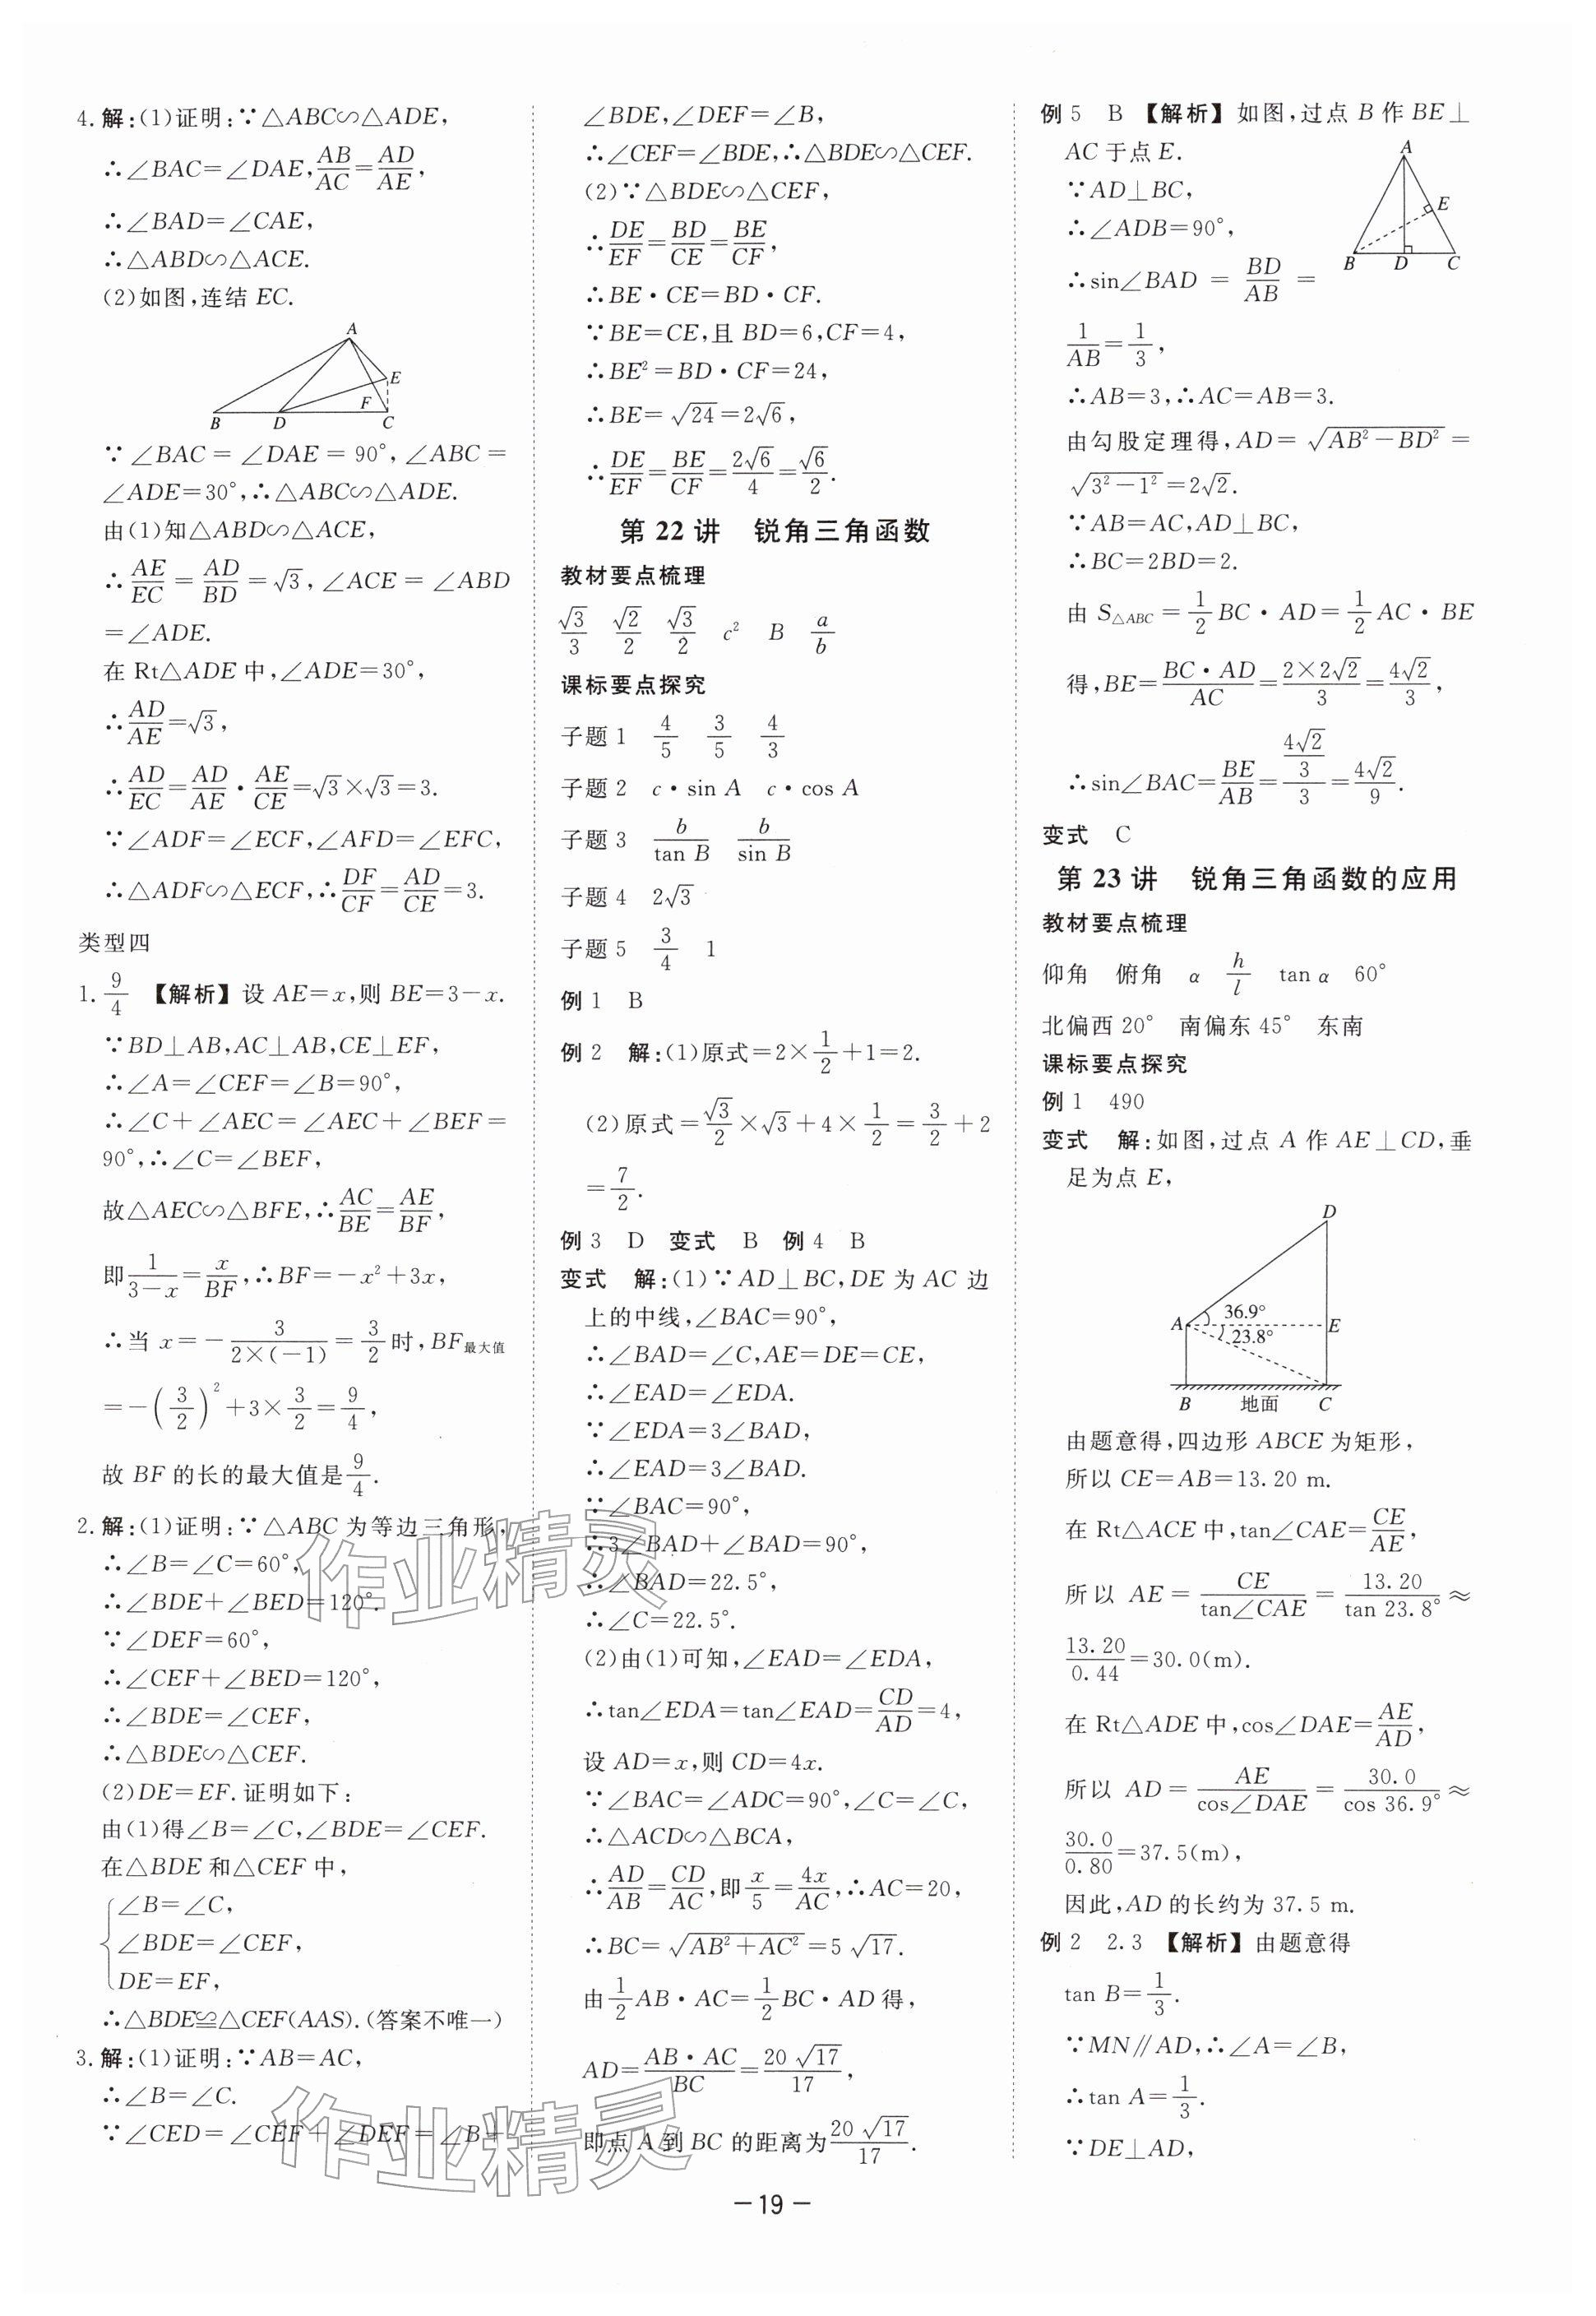 4.解:(1)证明:∵△ABC∽△ADE,
∴∠BAC=∠DAE,AB/AC=AD/AE,
∴∠BAD=∠CAE,
∴△ABD∽△ACE.
(2)如图,连结 EC.
A
E
F
B D C
∵∠BAC=∠DAE=90°,∠ABC=
∠ADE=30°,∴△ABC∽△ADE.
由(1)知△ABD∽△ACE,
∴AE/EC=AD/BD=√3,∠ACE=∠ABD
=∠ADE.
在 Rt△ADE 中,∠ADE=30°,
∴AD/AE=√3,
∴AD/EC=AD/AE·AE/CE=√3×√3=3.
∵∠ADF=∠ECF,∠AFD=∠EFC,
∴△ADF∽△ECF,∴DF/CF=AD/CE=3.
类型四
1.9/4 【解析】设 AE=x,则 BE=3-x.
∵BD⊥AB,AC⊥AB,CE⊥EF,
∴∠A=∠CEF=∠B=90°,
∴∠C+∠AEC=∠AEC+∠BEF=
90°,∴∠C=∠BEF,
故△AEC∽△BFE,∴AC/BE=AE/BF,
即1/(3-x)=x/BF,∴BF=-x²+3x,
∴当 x=-3/(2×(-1))=3/2时,BF最大值
=-(3/2)²+3×3/2=9/4,
故 BF 的长的最大值是9/4.
2.解:(1)证明:∵△ABC 为等边三角形,
∴∠B=∠C=60°,
∴∠BDE+∠BED=120°.
∵∠DEF=60°,
∴∠CEF+∠BED=120°,
∴∠BDE=∠CEF,
∴△BDE∽△CEF.
(2)DE=EF.证明如下:
由(1)得∠B=∠C,∠BDE=∠CEF.
在△BDE 和△CEF 中,
∠B=∠C,
∠BDE=∠CEF,
DE=EF,
∴△BDE≌△CEF(AAS).(答案不唯一)
3.解:(1)证明:∵AB=AC,
∴∠B=∠C.
∵∠CED=∠CEF+∠DEF=∠B+
∠BDE,∠DEF=∠B,
∴∠CEF=∠BDE,∴△BDE∽△CEF.
(2)∵△BDE∽△CEF,
∴DE/EF=BD/CE=BE/CF,
∴BE·CE=BD·CF.
∵BE=CE,且 BD=6,CF=4,
∴BE²=BD·CF=24,
∴BE=√24=2√6,
∴DE/EF=BE/CF=2√6/4=√6/2.
第 22 讲 锐角三角函数
教材要点梳理
√3/3 √2/2 √3/2 c² B a/b
课标要点探究
子题 1 4/5 3/5 4/3
子题 2 c·sin A c·cos A
子题 3 b/tan B b/sin B
子题 4 2√3
子题 5 3/4 1
例 1 B
例 2 解:(1)原式=2×1/2+1=2.
(2)原式=√3/2×√3+4×1/2=3/2+2
=7/2.
例 3 D 变式 B 例 4 B
变式 解:(1)∵AD⊥BC,DE 为 AC 边
上的中线,∠BAC=90°,
∴∠BAD=∠C,AE=DE=CE,
∴∠EAD=∠EDA.
∵∠EDA=3∠BAD,
∴∠EAD=3∠BAD.
∵∠BAC=90°,
∴3∠BAD+∠BAD=90°,
∴∠BAD=22.5°,
∴∠C=22.5°.
(2)由(1)可知,∠EAD=∠EDA,
∴tan∠EDA=tan∠EAD=CD/AD=4,
设 AD=x,则 CD=4x.
∵∠BAC=∠ADC=90°,∠C=∠C,
∴△ACD∽△BCA,
∴AD/AB=CD/AC,即x/5=4x/AC,∴AC=20,
∴BC=√(AB²+AC²)=5√17.
由1/2AB·AC=1/2BC·AD得,
AD=AB·AC/BC=20√17/17,
即点 A 到 BC 的距离为20√17/17.
例 5 B 【解析】如图,过点 B 作 BE⊥
AC 于点 E.
∵AD⊥BC,
∴∠ADB=90°,
∴sin∠BAD=BD/AB=
A
E
B D C
1/AB=1/3,
∴AB=3,∴AC=AB=3.
由勾股定理得,AD=√(AB²-BD²)=
√(3²-1²)=2√2.
∵AB=AC,AD⊥BC,
∴BC=2BD=2.
由 S△ABC=1/2BC·AD=1/2AC·BE
得,BE=BC·AD/AC=2×2√2/3=4√2/3,
∴sin∠BAC=BE/AB=(4√2/3)/3=4√2/9.
变式 C
第 23 讲 锐角三角函数的应用
教材要点梳理
仰角 俯角 α h/l tan α 60°
北偏西 20° 南偏东 45° 东南
课标要点探究
例 1 490
变式 解:如图,过点 A 作 AE⊥CD,垂
足为点 E,
D
A 36.9° E
23.8°
B 地面 C
由题意得,四边形 ABCE 为矩形,
所以 CE=AB=13.20 m.
在 Rt△ACE 中,tan∠CAE=CE/AE,
所以 AE=CE/tan∠CAE=13.20/tan 23.8°≈
13.20/0.44=30.0(m).
在 Rt△ADE 中,cos∠DAE=AE/AD,
所以 AD=AE/cos∠DAE=30.0/cos 36.9°≈
30.0/0.80=37.5(m),
因此,AD 的长约为 37.5 m.
例 2 2.3 【解析】由题意得
tan B=1/3.
∵MN∥AD,∴∠A=∠B,
∴tan A=1/3.
∵DE⊥AD,
作业精灵
作业精灵
— 19 —